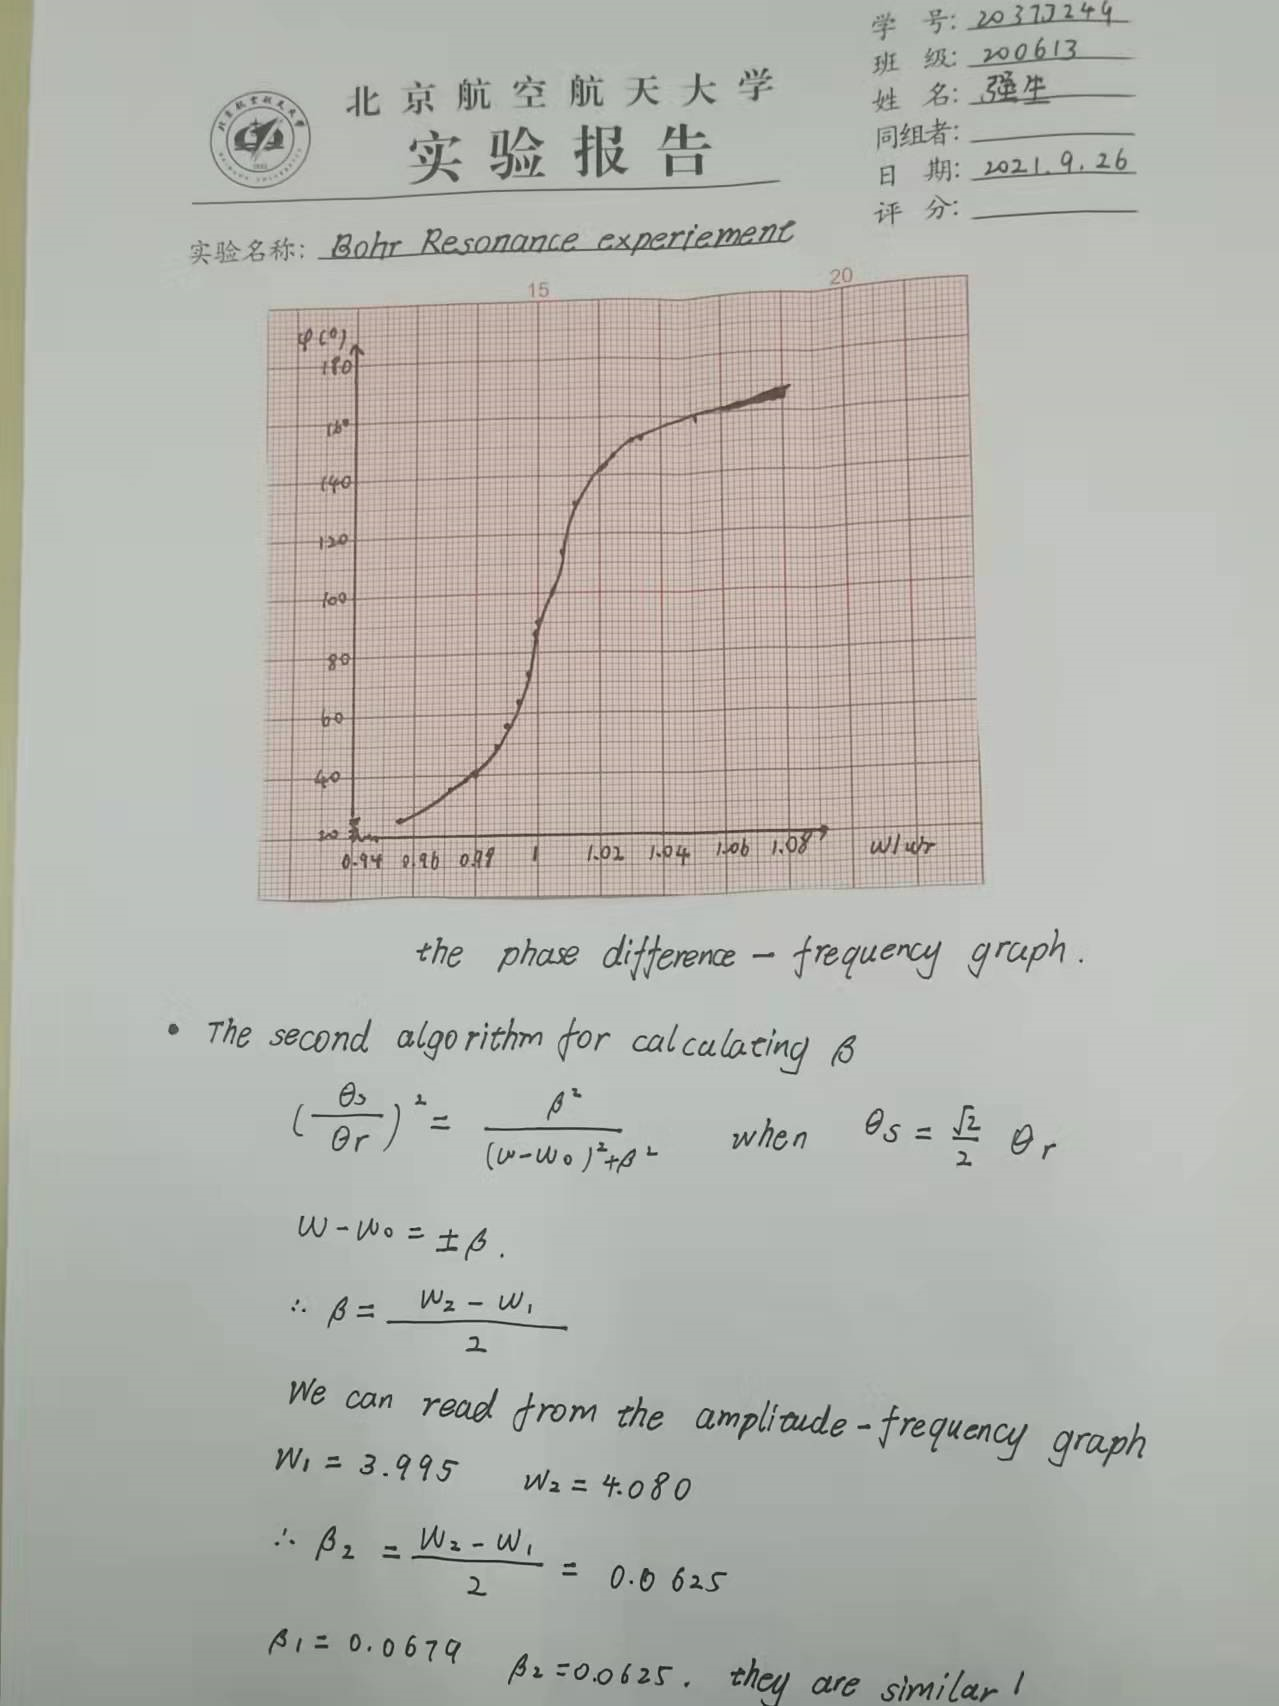 学 号: 20373249
班 级: 200613
姓 名: 强生
同组者:
日 期: 2021.9.26
评 分:
北京航空航天大学
实验报告
实验名称: Bohr Resonance experiement
15 20
φ(°)
180
160
140
120
100
80
60
40
20
0.94 0.96 0.98 1 1.02 1.04 1.06 1.08 w/wr
the phase difference - frequency graph.
• The second algorithm for calculating β
(θs/θr)² = β²/((w-w₀)²+β²) when θs = √2/2 θr
w-w₀ = ±β.
∴ β = (w₂ - w₁)/2
We can read from the amplitude-frequency graph
w₁ = 3.995 w₂ = 4.080
∴ β₂ = (w₂ - w₁)/2 = 0.0625
β₁ = 0.0679 β₂ = 0.0625. they are similar!